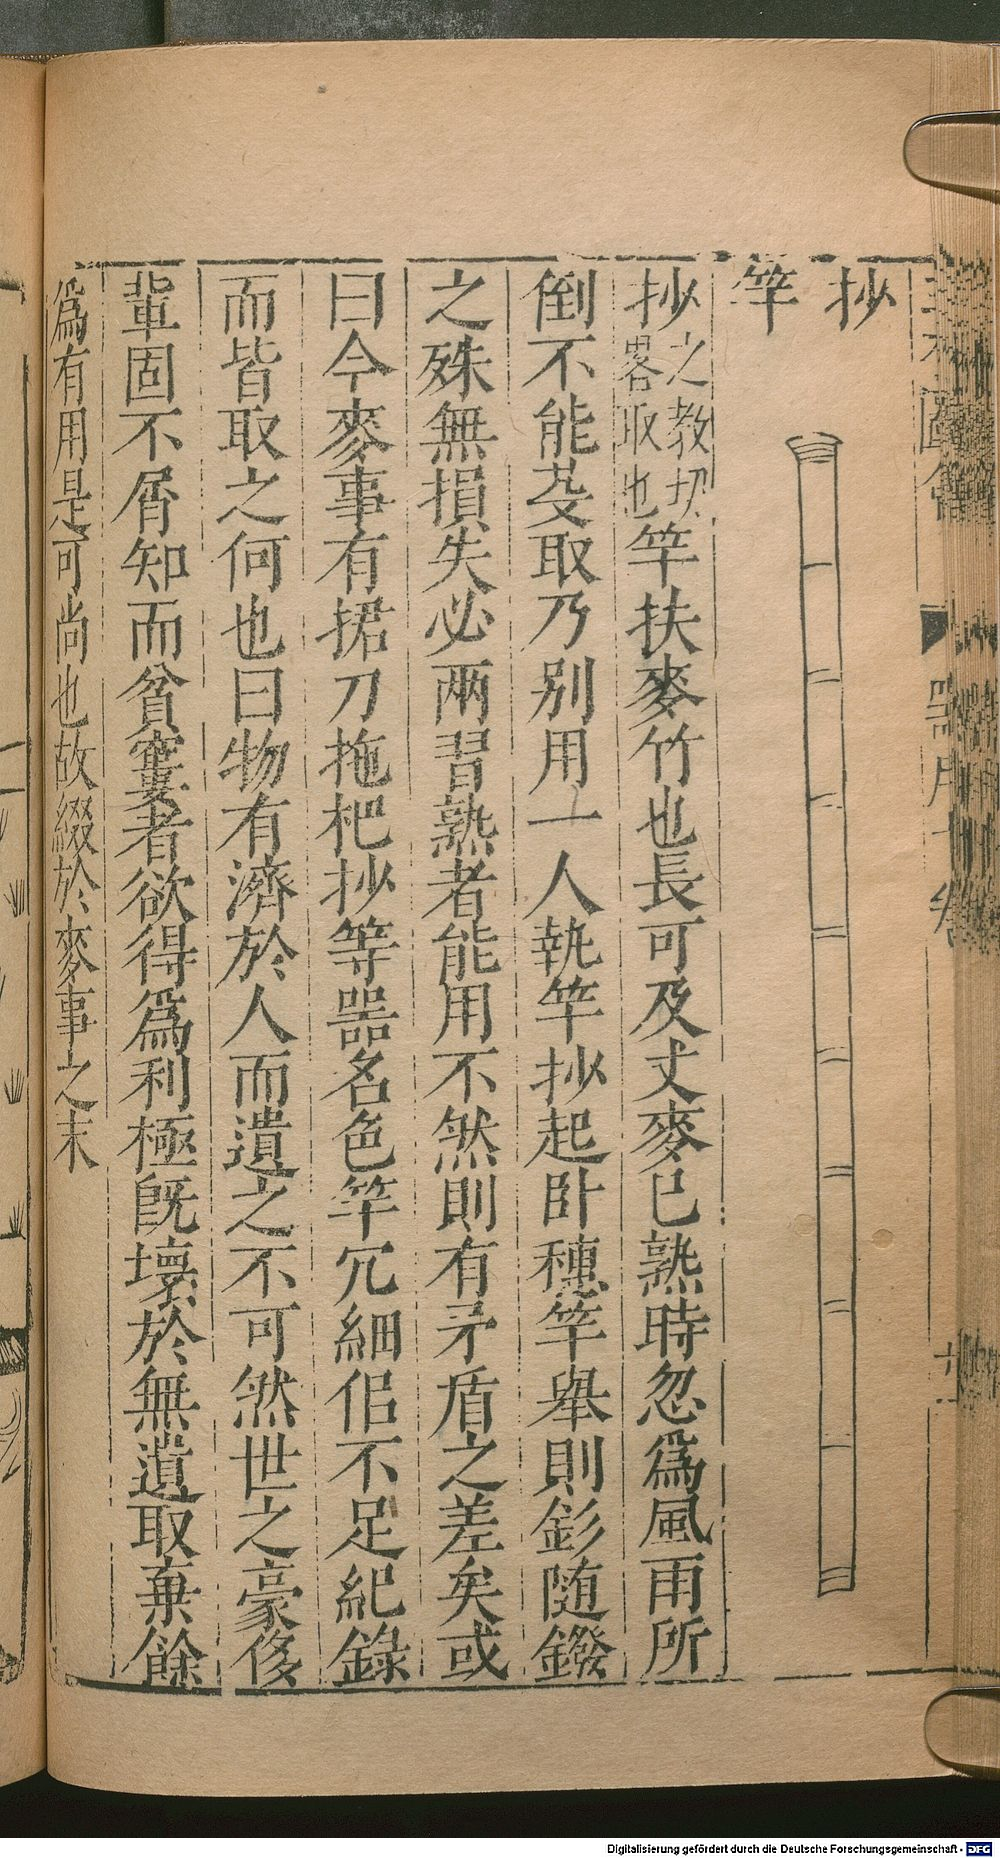 抄
竿
抄之教切畧取也竿扶麥竹也長可及丈麥已熟時忽爲風雨所
倒不能芟取乃别用一人執竿抄起卧穗竿舉則釤随鏺
之殊無損失必兩習熟者能用不然則有矛盾之差矣或
曰今麥事有捃刀拖杷抄等噐名色竿冗細佀不足紀錄
而皆取之何也曰物有濟於人而遺之不可然世之豪侈
輩固不屑知而貧窶者欲得爲利極旣壞於無遺取棄餘
爲有用是可尚也故綴於麥事之末
Digitalisierung gefördert durch die Deutsche Forschungsgemeinschaft - DFG